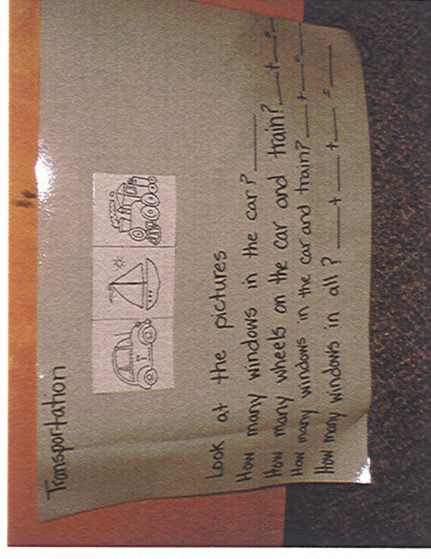 Transportation
Look at the pictures
How many windows in the car? ____
How many wheels on the car and train? ___+___=___
How many windows in the car and train? ___+___=___
How many windows in all? ___+___+___=___